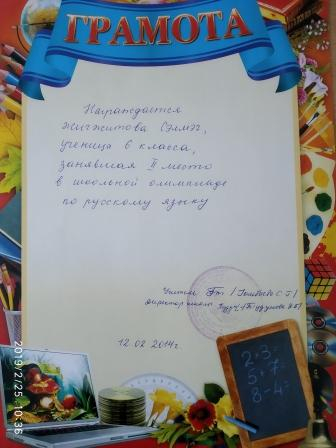 ГРАМОТА
Награждается
Жигжитова Сэлмэг,
ученица 6 класса,
занявшая II место
в школьной олимпиаде
по русскому языку
Учитель
Директор школы
12 02 2014г.
2+3=
5+7
8-4=
2019/2/25 10:36